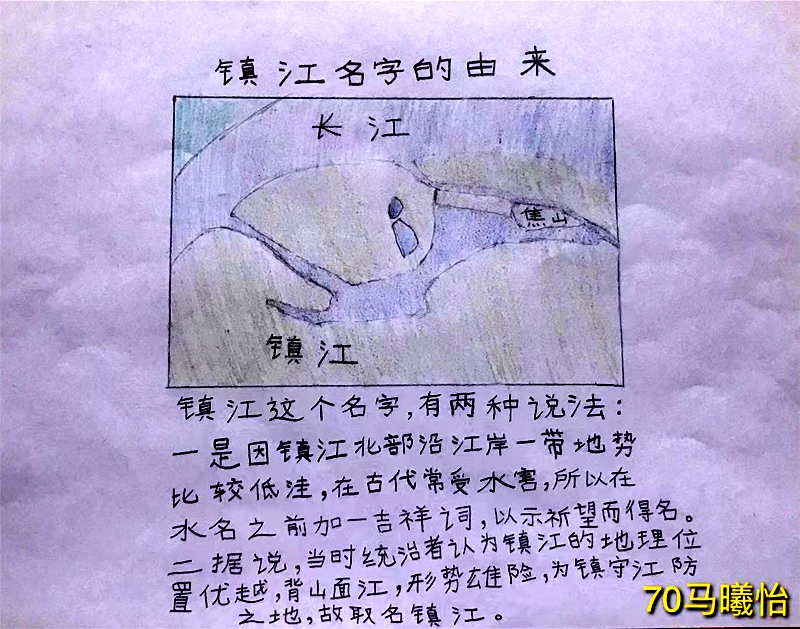 镇江名字的由来
长江
焦山
镇江
镇江这个名字,有两种说法:
一是因镇江北部沿江岸一带地势
比较低洼,在古代常受水害,所以在
水名之前加一吉祥词,以示祈望而得名。
二据说,当时统治者认为镇江的地理位
置优越,背山面江,形势雄险,为镇守江防
之地,故取名镇江。
70马曦怡